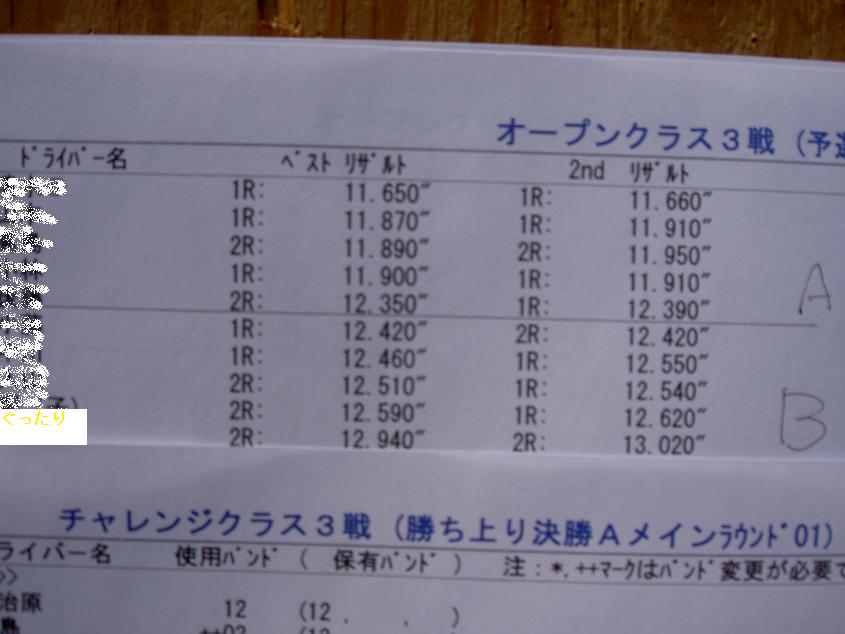 オープンクラス３戦 (予選
ﾄﾞﾗｲﾊﾞｰ名 ﾍﾞｽﾄ ﾘｻﾞﾙﾄ 2nd ﾘｻﾞﾙﾄ
1R: 11.650″ 1R: 11.660″
1R: 11.870″ 1R: 11.910″
2R: 11.890″ 2R: 11.950″
1R: 11.900″ 1R: 11.910″ A
2R: 12.350″ 1R: 12.390″
1R: 12.420″ 2R: 12.420″
1R: 12.460″ 1R: 12.550″
2R: 12.510″ 1R: 12.540″
子) 2R: 12.590″ 1R: 12.620″ B
ぐったり 2R: 12.940″ 2R: 13.020″
チャレンジクラス３戦 (勝ち上り決勝Ａメインﾗｳﾝﾄﾞ01)
ライバー名 使用ﾊﾞﾝﾄﾞ ( 保有ﾊﾞﾝﾄﾞ ) 注:*,++ﾏｰｸはﾊﾞﾝﾄﾞ変更が必要で
>>
治原 12 (12 . . )
島